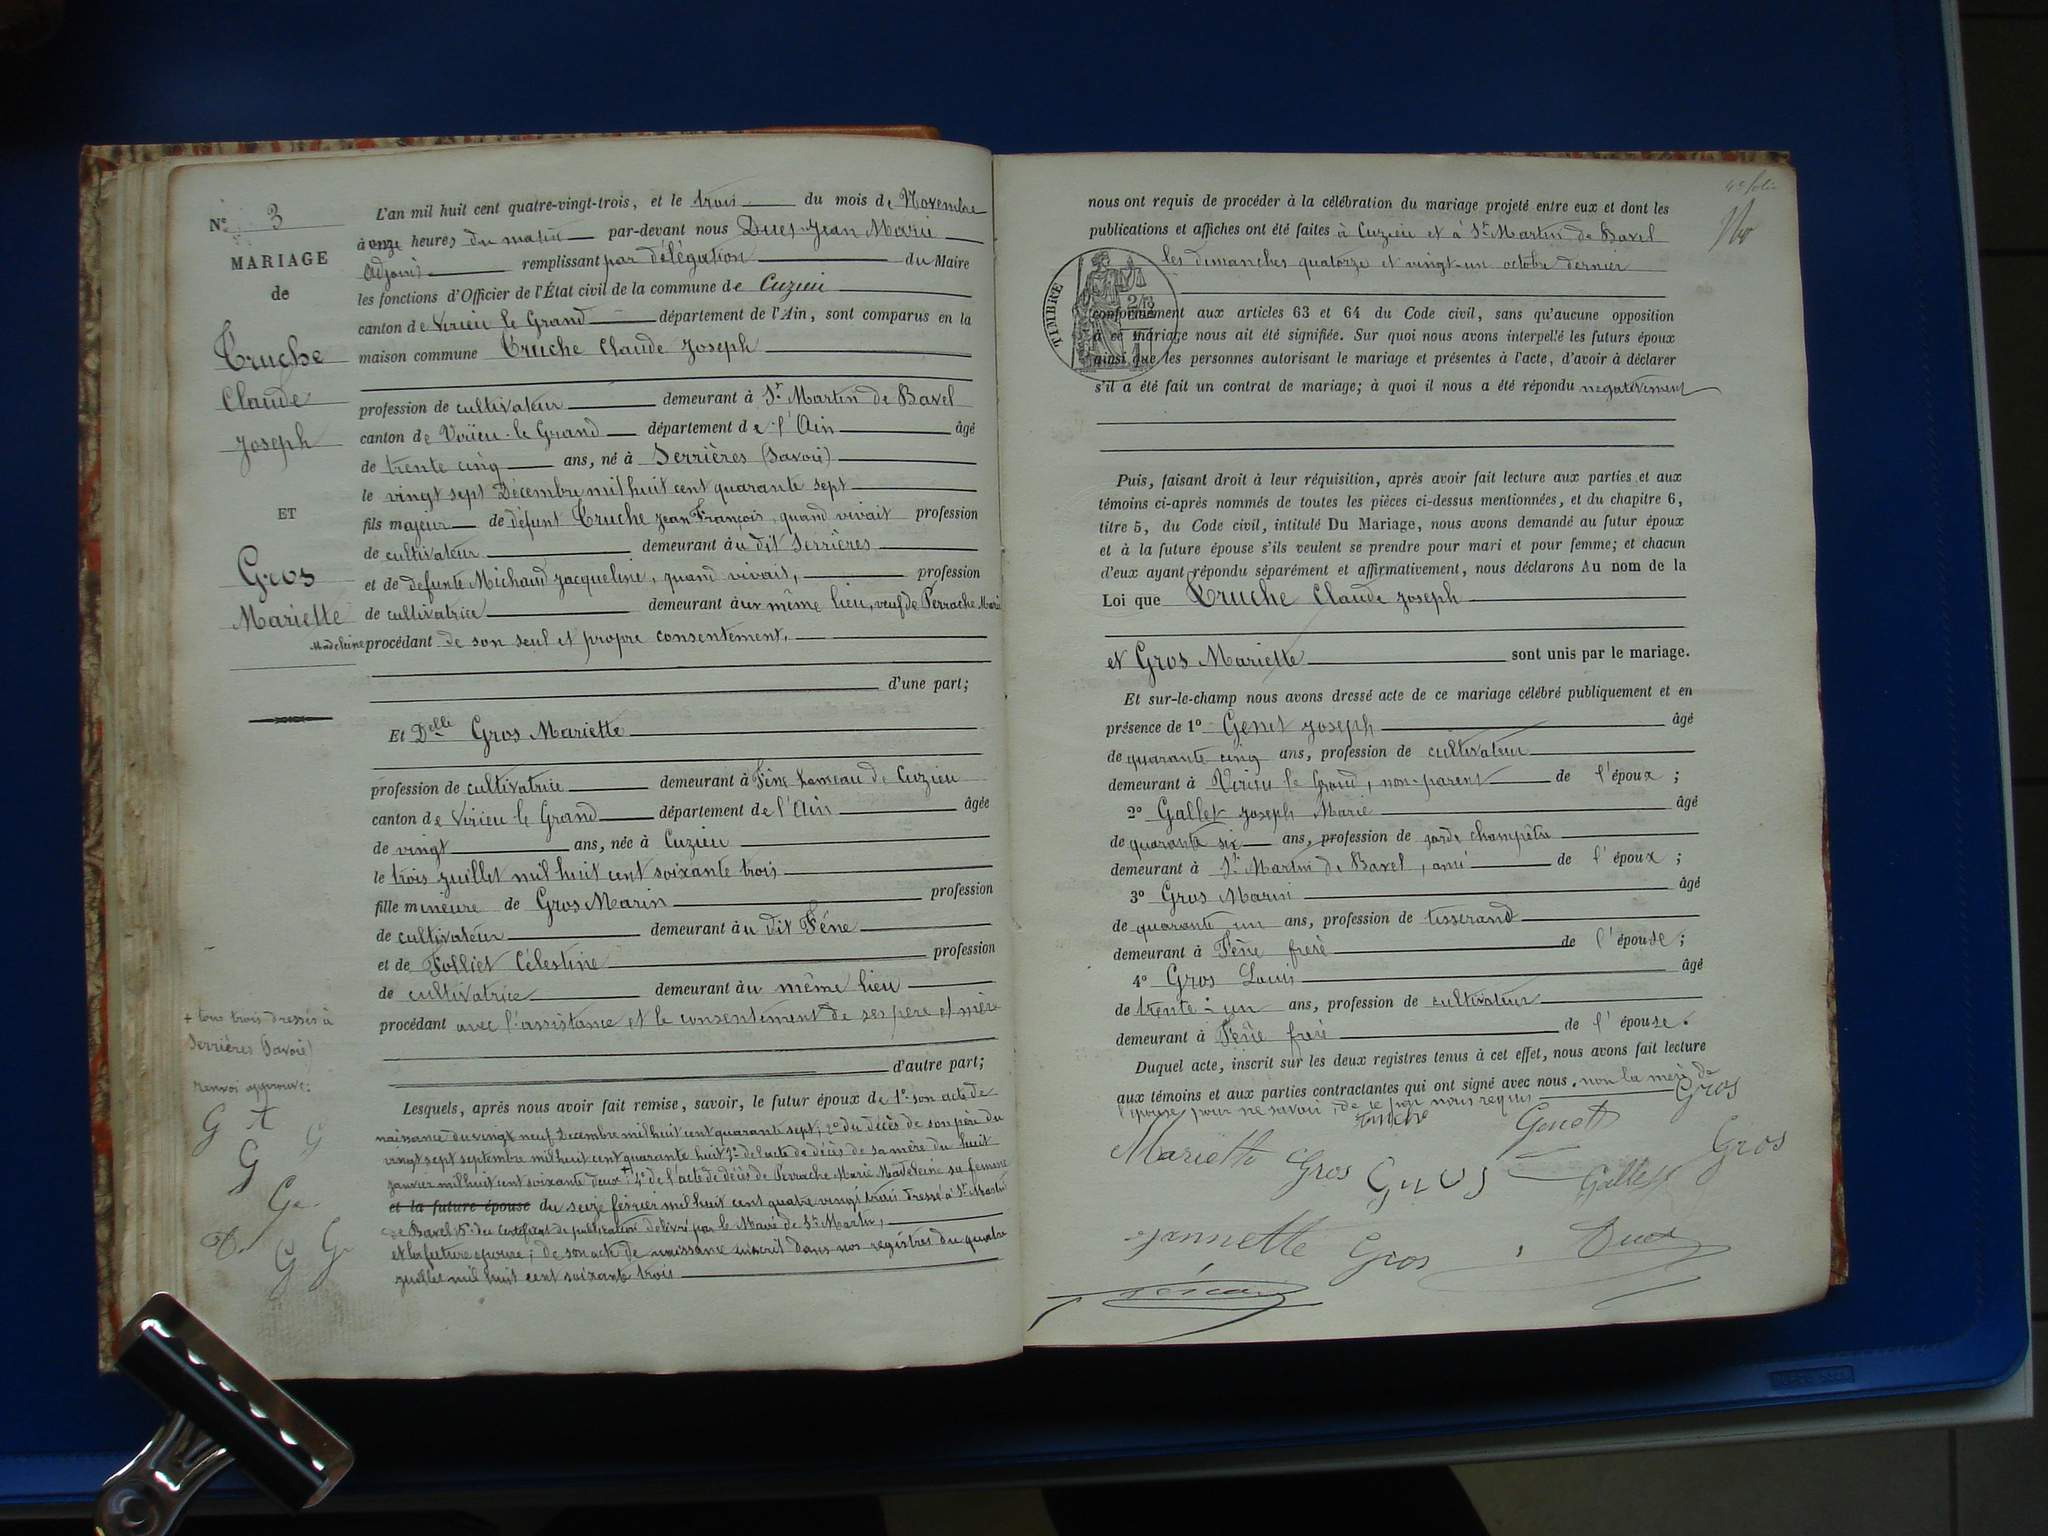 N° 3
MARIAGE
de
Truche
Claude
Joseph
ET
Gros
Mariette
L'an mil huit cent quatre-vingt-trois, et le trois du mois de Novembre
à onze heures du matin par-devant nous Duet Jean Marie
Adjoint remplissant par délégation du Maire
les fonctions d'Officier de l'État civil de la commune de Cuzieu
canton de Virieu le Grand département de l'Ain, sont comparus en la
maison commune Truche Claude Joseph
profession de cultivateur demeurant à St Martin de Bavel
canton de Virieu-le Grand département de l'Ain âgé
de trente cinq ans, né à Serrières (Savoie)
le vingt sept Décembre mil huit cent quarante sept
fils majeur de défunt Truche Jean François, quand vivait profession
de cultivateur demeurant au dit Serrières
et de defunte Michaud Jacqueline, quand vivait, profession
de cultivatrice demeurant au même lieu, veuf de Perrache Marie
Madeleine procédant de son seul et propre consentement,
d'une part;
Et Delle Gros Mariette
profession de cultivatrice demeurant à Fène hameau de Cuzieu
canton de Virieu-le Grand département de l'Ain âgée
de vingt ans, née à Cuzieu
le trois Juillet mil huit cent soixante trois
fille mineure de Gros Marin profession
de cultivateur demeurant au dit Féne
et de Folliet Célestine profession
de cultivatrice demeurant au même lieu
procédant avec l'assistance et le consentement de ses père et mère
d'autre part;
+ tous trois dressés à
Serrières (Savoie)
renvoi approuvé:
G t G
G
G
G G
Lesquels, après nous avoir fait remise, savoir, le futur époux de 1° son acte de
naissance du vingt neuf Decembre mil huit cent quarante sept; 2° du décès de son père du
vingt sept septembre mil huit cent quarante huit 3° de l'acte de décès de sa mère du huit
janvier mil huit cent soixante deux + 4° de l'acte de décès de Perrache Marie Madeleine sa femme
et la future épouse du seize février mil huit cent quatre vingt trois dressé à St Martin
de Bavel 5° du certificat de publication délivré par le Maire de St Martin,
et la future épouse; de son acte de naissance inscrit dans nos registres du quatre
juillet mil huit cent soixante trois
4e folio
nous ont requis de procéder à la célébration du mariage projeté entre eux et dont les
publications et affiches ont été faites à Cuzieu et à St Martin de Bavel
les dimanches quatorze et vingt-un octobre dernier
TIMBRE
conformément aux articles 63 et 64 du Code civil, sans qu'aucune opposition
à ce mariage nous ait été signifiée. Sur quoi nous avons interpellé les futurs époux
ainsi que les personnes autorisant le mariage et présentes à l'acte, d'avoir à déclarer
s'il a été fait un contrat de mariage; à quoi il nous a été répondu negativement
Puis, faisant droit à leur réquisition, après avoir fait lecture aux parties et aux
témoins ci-après nommés de toutes les pièces ci-dessus mentionnées, et du chapitre 6,
titre 5, du Code civil, intitulé Du Mariage, nous avons demandé au futur époux
et à la future épouse s'ils veulent se prendre pour mari et pour femme; et chacun
d'eux ayant répondu séparément et affirmativement, nous déclarons Au nom de la
Loi que Truche Claude Joseph
et Gros Mariette sont unis par le mariage.
Et sur-le-champ nous avons dressé acte de ce mariage célébré publiquement et en
présence de 1° Genet Joseph âgé
de quarante cinq ans, profession de cultivateur
demeurant à Virieu le Grand, non-parent de l'époux;
2° Gallet Joseph Marie âgé
de quarante six ans, profession de garde champêtre
demeurant à St Martin de Bavel, ami de l'époux;
3° Gros Marin âgé
de quarante un ans, profession de tisserand
demeurant à Fène frere de l'épouse;
4° Gros Louis âgé
de trente-un ans, profession de cultivateur
demeurant à Fène frere de l'épouse.
Duquel acte, inscrit sur les deux registres tenus à cet effet, nous avons fait lecture
aux témoins et aux parties contractantes qui ont signé avec nous, non la mere de
l'épouse pour ne savoir, de ce par nous requis
Truche Genet Gros
Mariette Gros Gros Gallet Gros
Jannette Gros Duet